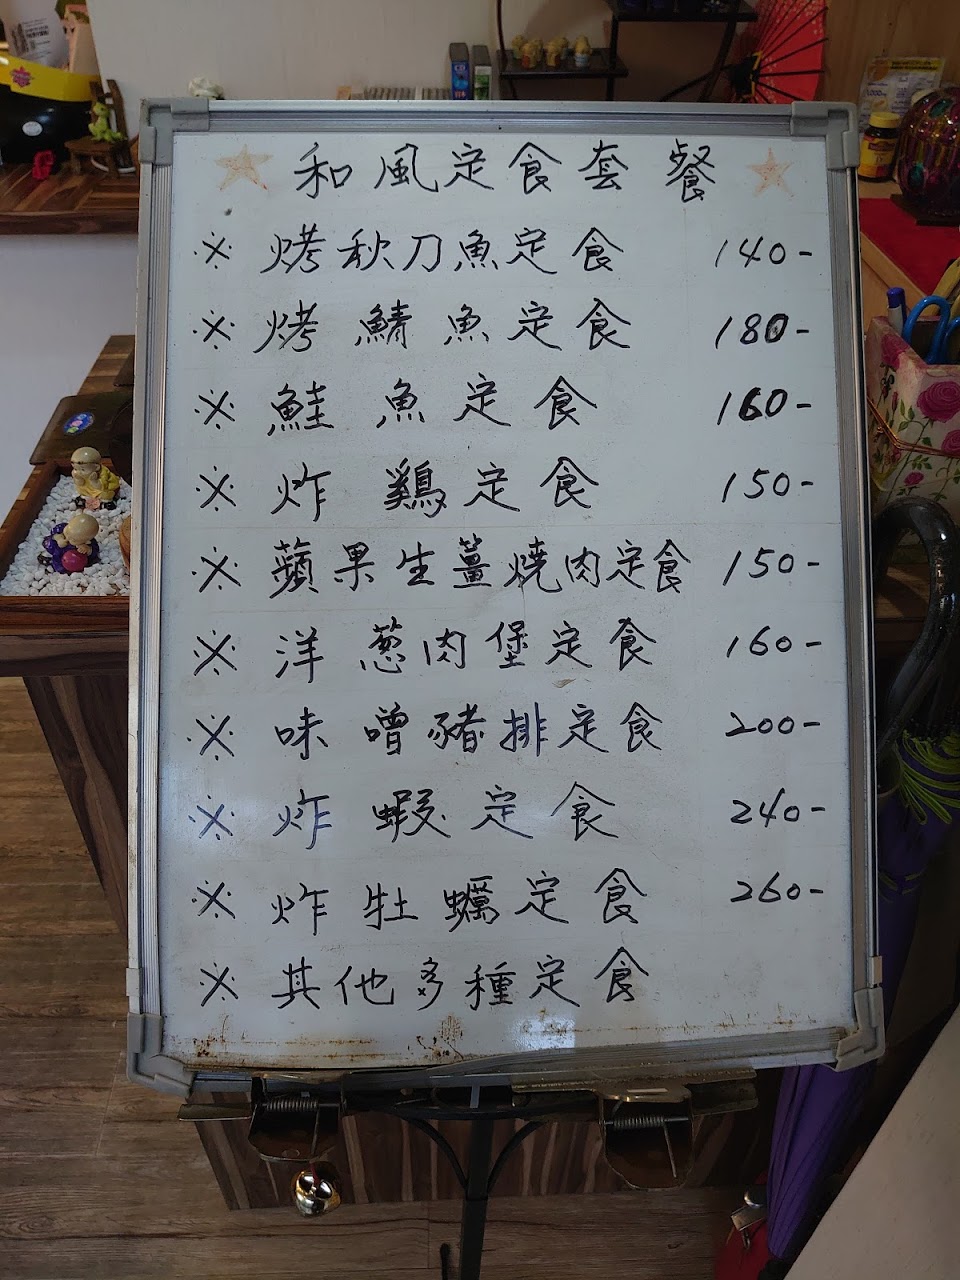 ☆ 和風定食套餐 ☆
※ 烤秋刀魚定食 140-
※ 烤鯖魚定食 180-
※ 鮭魚定食 160-
※ 炸鷄定食 150-
※ 蘋果生薑燒肉定食 150-
※ 洋葱肉堡定食 160-
※ 味噌豬排定食 200-
※ 炸蝦定食 240-
※ 炸牡蠣定食 260-
※ 其他多種定食